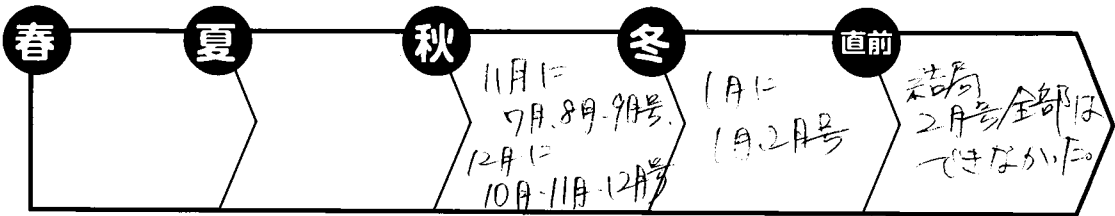 春
夏
秋
冬
直前
11月に
7月、8月、9月号、
12月に
10月・11月・12月号
1月に
1月、2月号
結局
2月号全部は
できなかった。